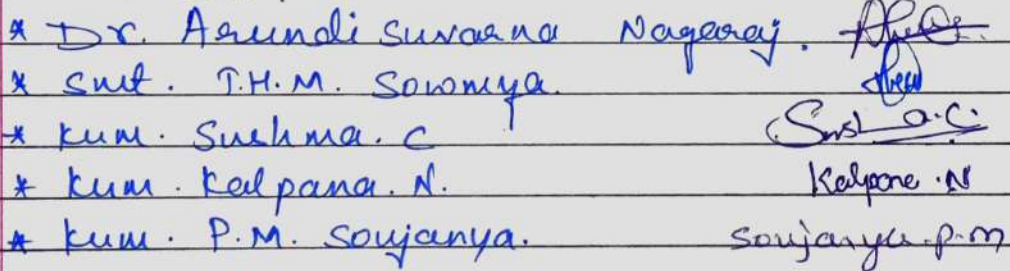 * Dr. Arundi Suvarna Nagaraj.
* Smt. T.H.M. Sowmya.
* Kum. Sushma. C Sush a.C.
* Kum. Kalpana. N. Kalpana .N
* Kum. P.M. Soujanya. Soujanya.p.m